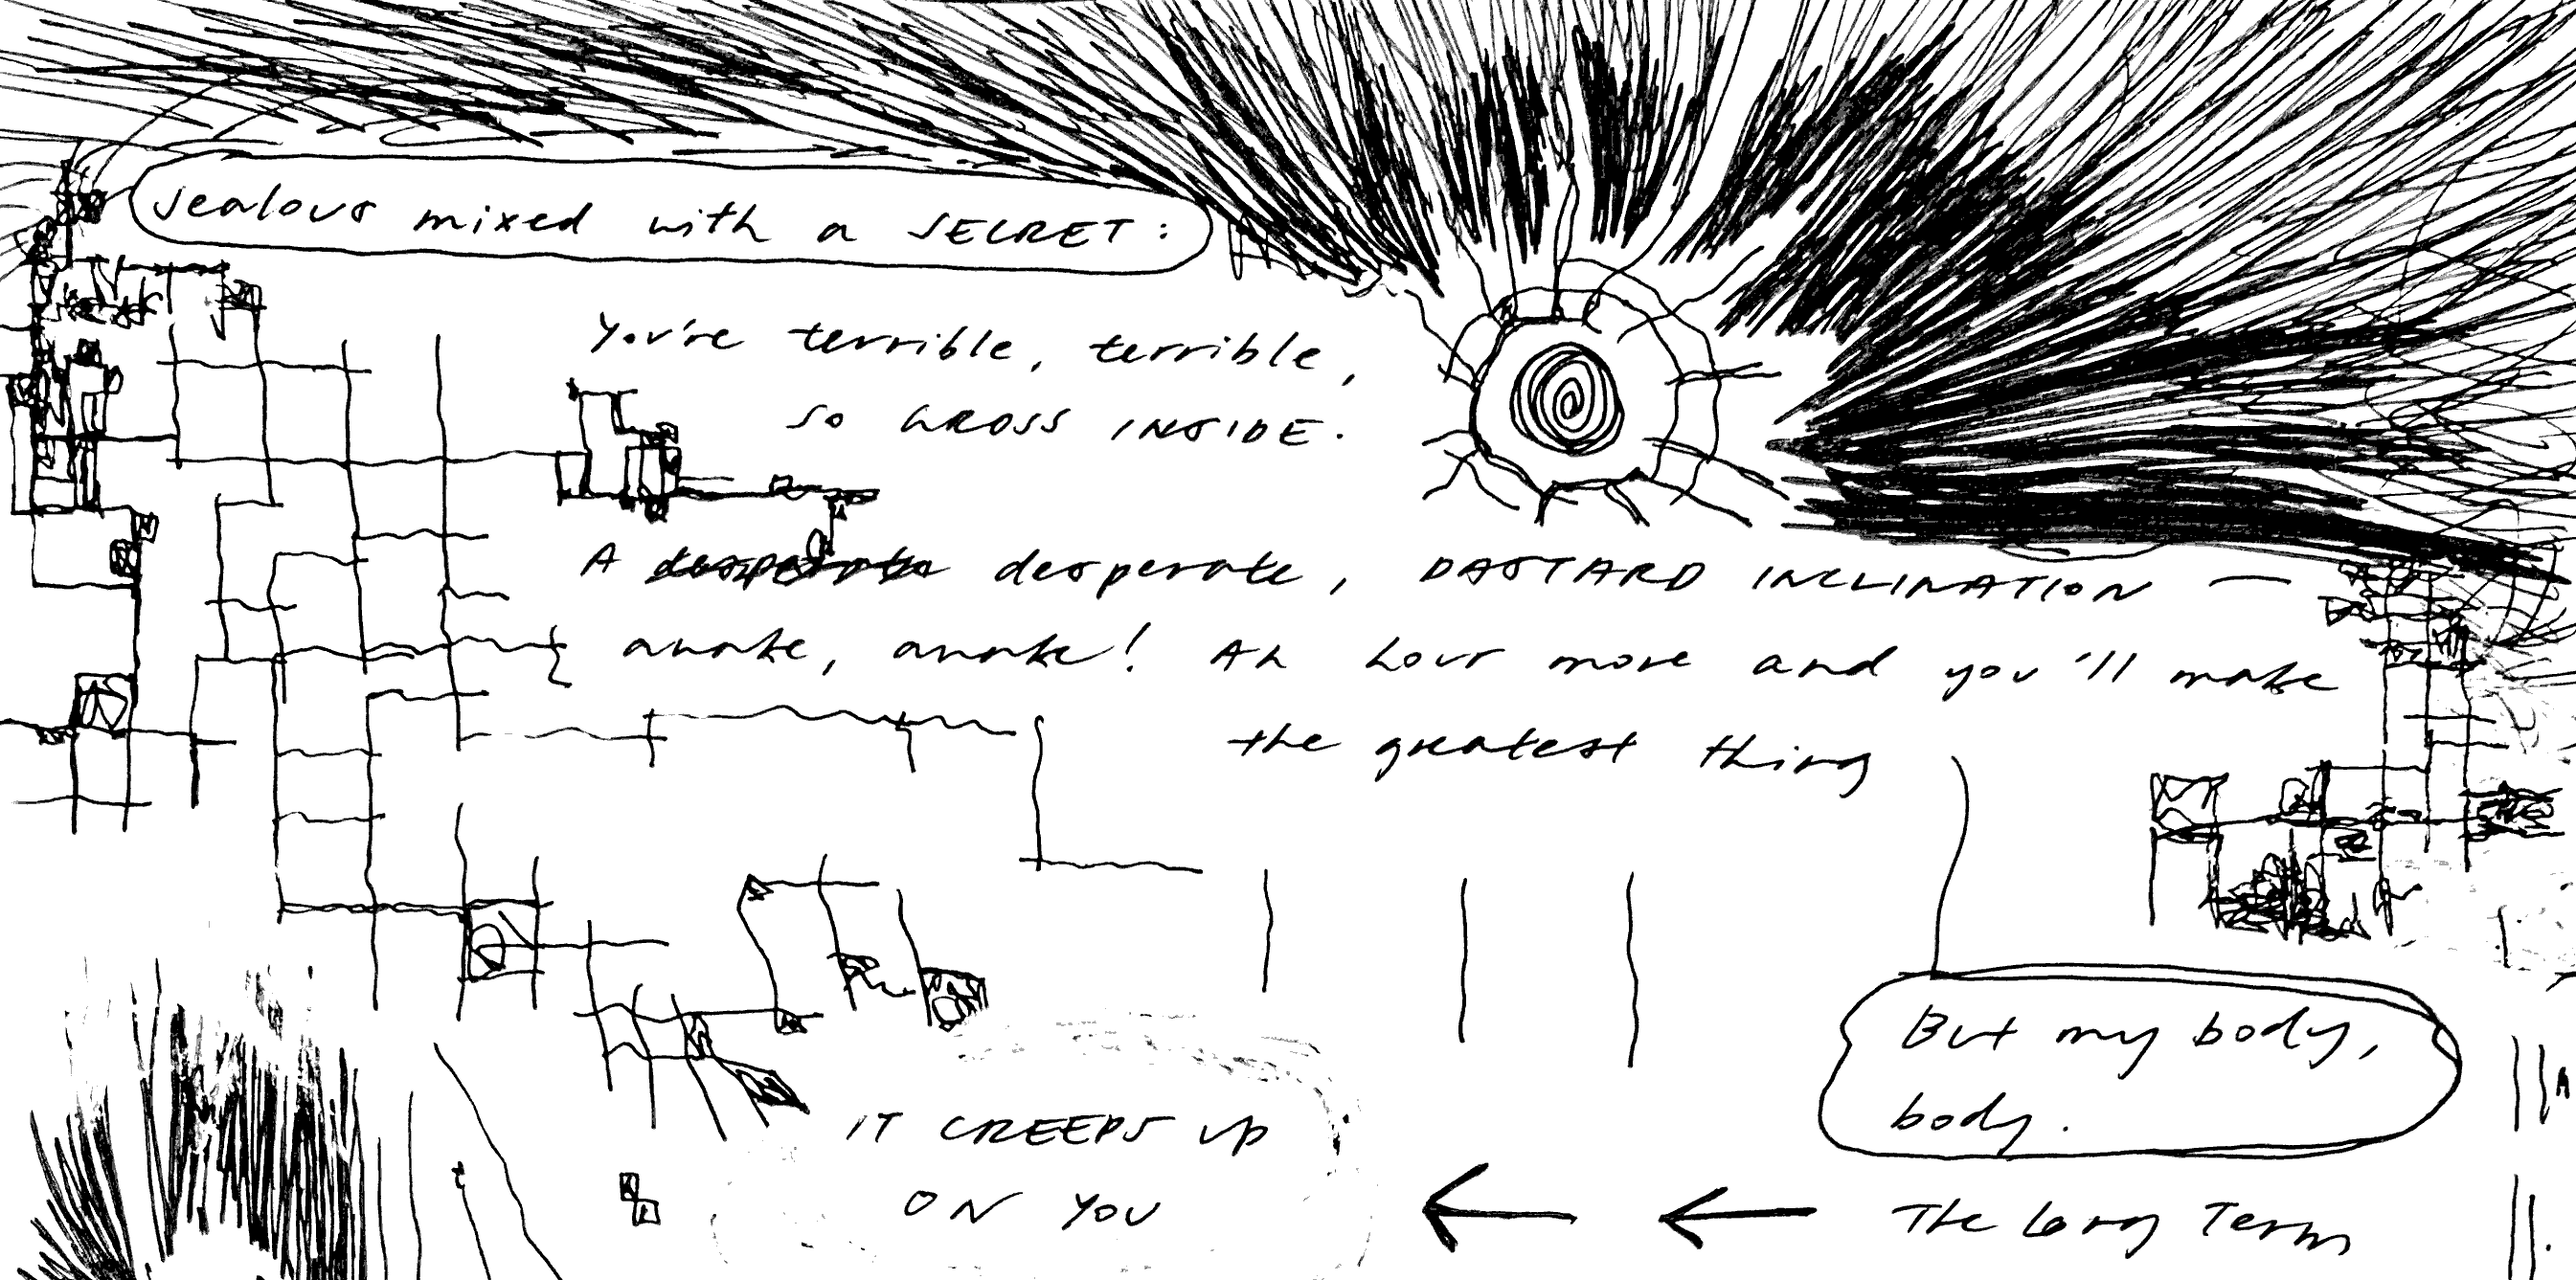 Jealous mixed with a SECRET:
You're terrible, terrible,
so GROSS INSIDE.
A desperate desperate, DASTARD INCLINATION —
awake, awake! An hour more and you'll make
the greatest thing
But my body,
body.
IT CREEPS UP
ON YOU
← ← The Long Term